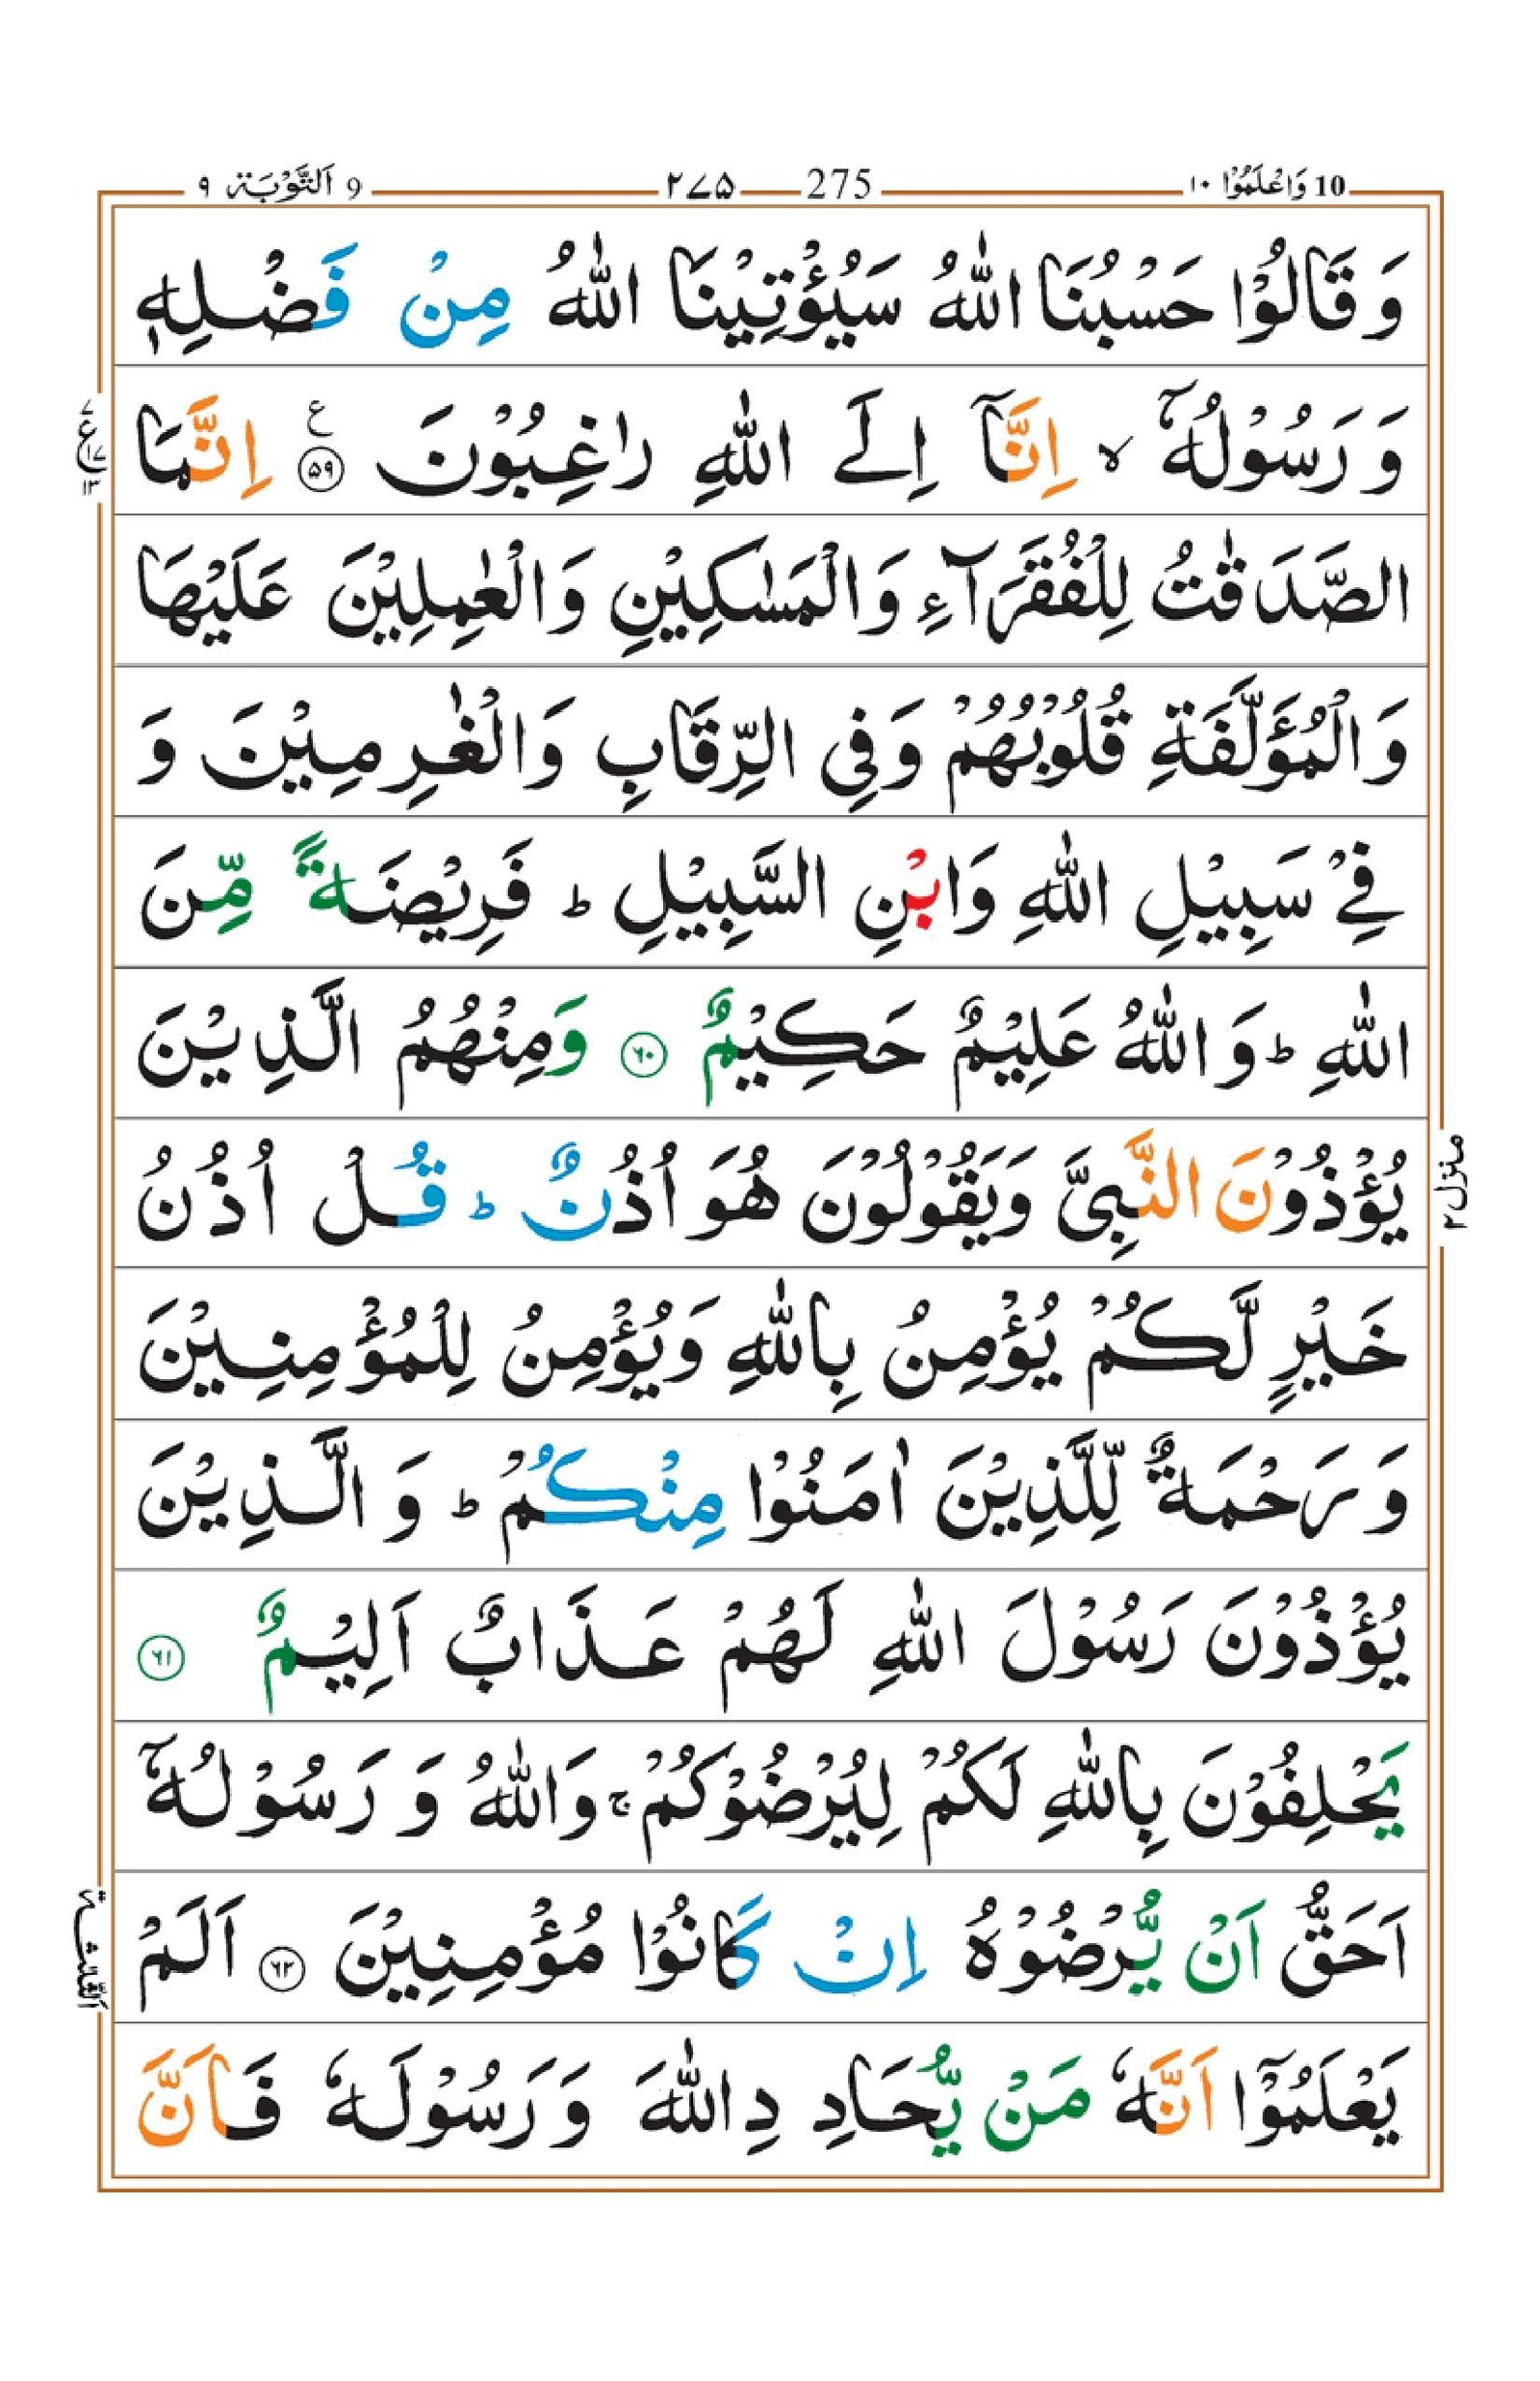 10 وَاعْلَمُوْۤا ١٠
275 ۲۷۵
9 اَلتَّوْبَة ٩
وَ قَالُوْا حَسْبُنَا اللّٰهُ سَيُؤْتِيْنَا اللّٰهُ مِنْ فَضْلِهٖ
وَ رَسُوْلُهٗۤ ۙ اِنَّاۤ اِلَى اللّٰهِ رٰغِبُوْنَ ۵۹ ع اِنَّمَا
ع ٧ ١٧ ١٣
الصَّدَقٰتُ لِلْفُقَرَآءِ وَالْمَسٰكِيْنِ وَالْعٰمِلِيْنَ عَلَيْهَا
وَالْمُؤَلَّفَةِ قُلُوْبُهُمْ وَفِي الرِّقَابِ وَالْغٰرِمِيْنَ وَ
فِيْ سَبِيْلِ اللّٰهِ وَابْنِ السَّبِيْلِ ؕ فَرِيْضَةً مِّنَ
اللّٰهِ ؕ وَ اللّٰهُ عَلِيْمٌ حَكِيْمٌ ۶۰ وَمِنْهُمُ الَّذِيْنَ
يُؤْذُوْنَ النَّبِيَّ وَيَقُوْلُوْنَ هُوَ اُذُنٌ ؕ قُلْ اُذُنُ
منزل ٢
خَيْرٍ لَّكُمْ يُؤْمِنُ بِاللّٰهِ وَيُؤْمِنُ لِلْمُؤْمِنِيْنَ
وَ رَحْمَةٌ لِّلَّذِيْنَ اٰمَنُوْا مِنْكُمْ ؕ وَ الَّذِيْنَ
يُؤْذُوْنَ رَسُوْلَ اللّٰهِ لَهُمْ عَذَابٌ اَلِيْمٌ ۶۱
يَحْلِفُوْنَ بِاللّٰهِ لَكُمْ لِيُرْضُوْكُمْ ۚ وَاللّٰهُ وَ رَسُوْلُهٗۤ
اَحَقُّ اَنْ يُّرْضُوْهُ اِنْ كَانُوْا مُؤْمِنِيْنَ ۶۲ اَلَمْ
الثلثة
يَعْلَمُوْۤا اَنَّهٗ مَنْ يُّحَادِدِ اللّٰهَ وَ رَسُوْلَهٗ فَاَنَّ